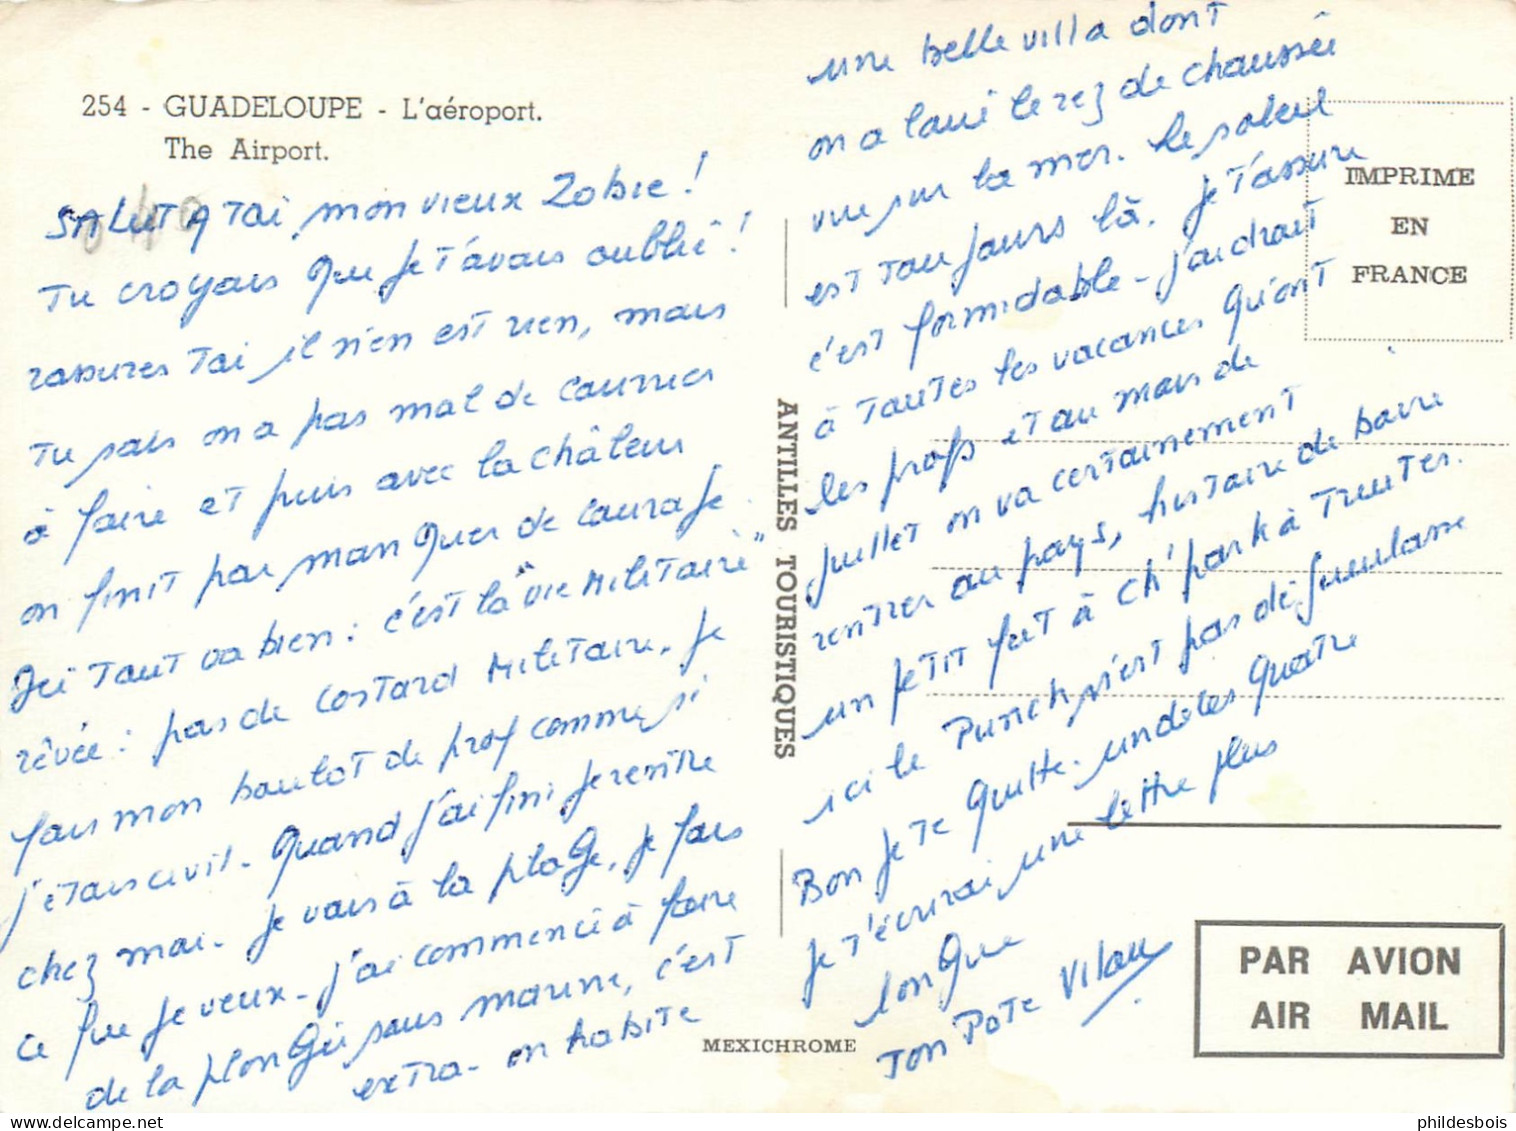 254 - GUADELOUPE - L'aéroport.
The Airport.
SALUT A TOI, mon vieux Zobie !
Tu croyais que je t'avais oublié !
rassures toi il n'en est rien, mais
tu sais on a pas mal de courrier
à faire et puis avec la châleur
on finit par manquer de courage.
Ici tout va bien : c'est la "vie militaire"
rêvée : pas de costard militaire. je
fais mon boulot de prof comme si
j'étais civil. Quand j'ai fini je rentre
chez moi. Je vais à la plage, je fais
ce que je veux. j'ai commencé à faire
de la plongée sous marine, c'est
extra. on habite
une belle villa dont
on a loué le rez de chaussée
vue sur la mer. Le soleil
est toujours là. Je t'assure
c'est formidable - j'ai droit
à toutes les vacances qu'ont
les profs et au mois de
juillet on va certainement
rentrer au pays, histoire de boire
un petit fut à ch'park à
ici le Punch n'est pas dégueulasse
Bon je te quitte. un de ces quatre
je t'écrirai une lettre plus
longue
Ton Pote Vilau
ANTILLES TOURISTIQUES
MEXICHROME
IMPRIME
EN
FRANCE
PAR AVION
AIR MAIL
phildesbois